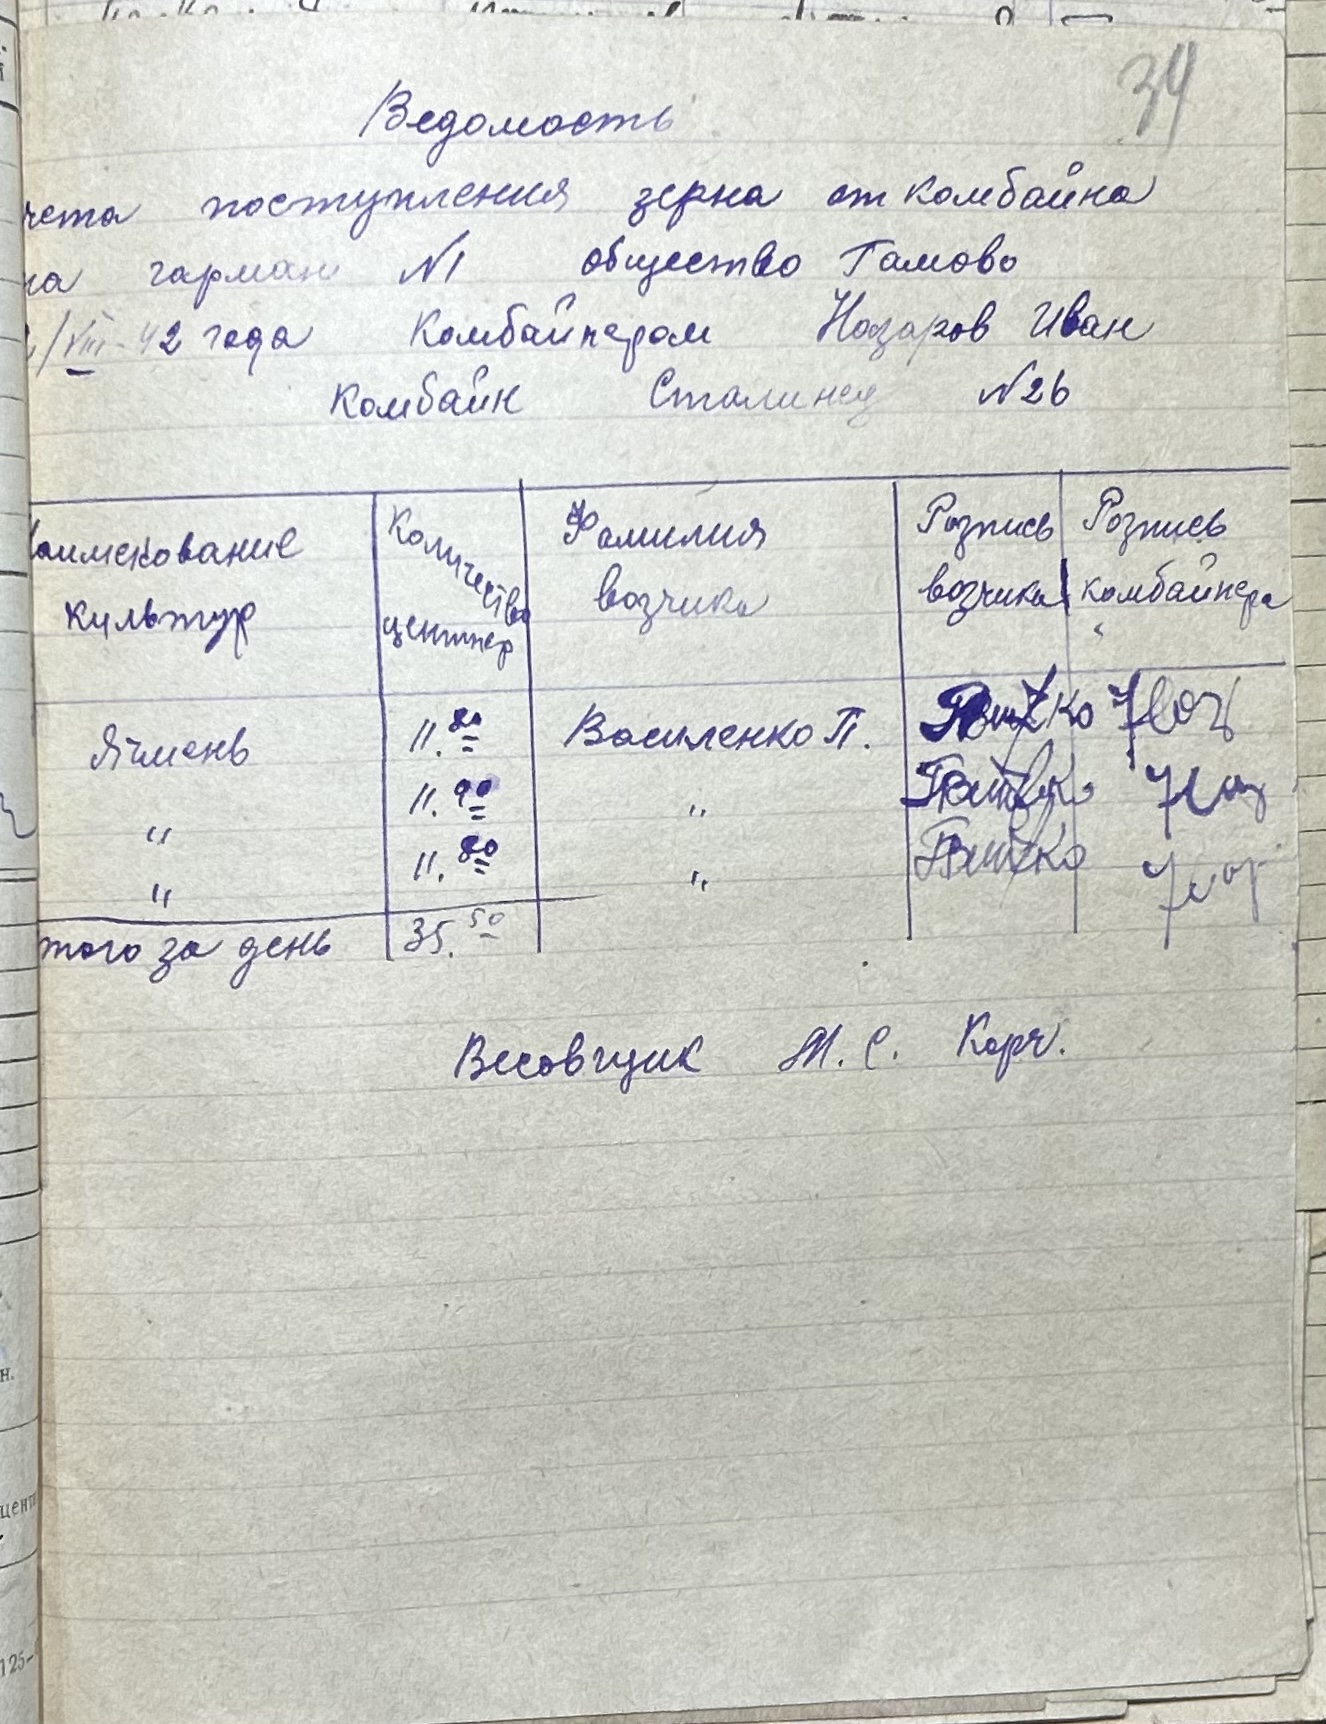 34
Ведомость
чета поступления зерна от комбайна
на гарман N1 общество Гамово
/VIII-42 года Комбайнером Назаров Иван
Комбайн Сталинец N26
Наименование культур Количество центнер Фамилия возчика Розпись возчика Розпись комбайнера
Ячмень 11.80 Василенко П.
" 11.90 "
" 11.80 "
того за день 35.50
Весовщик М. С. Корч.